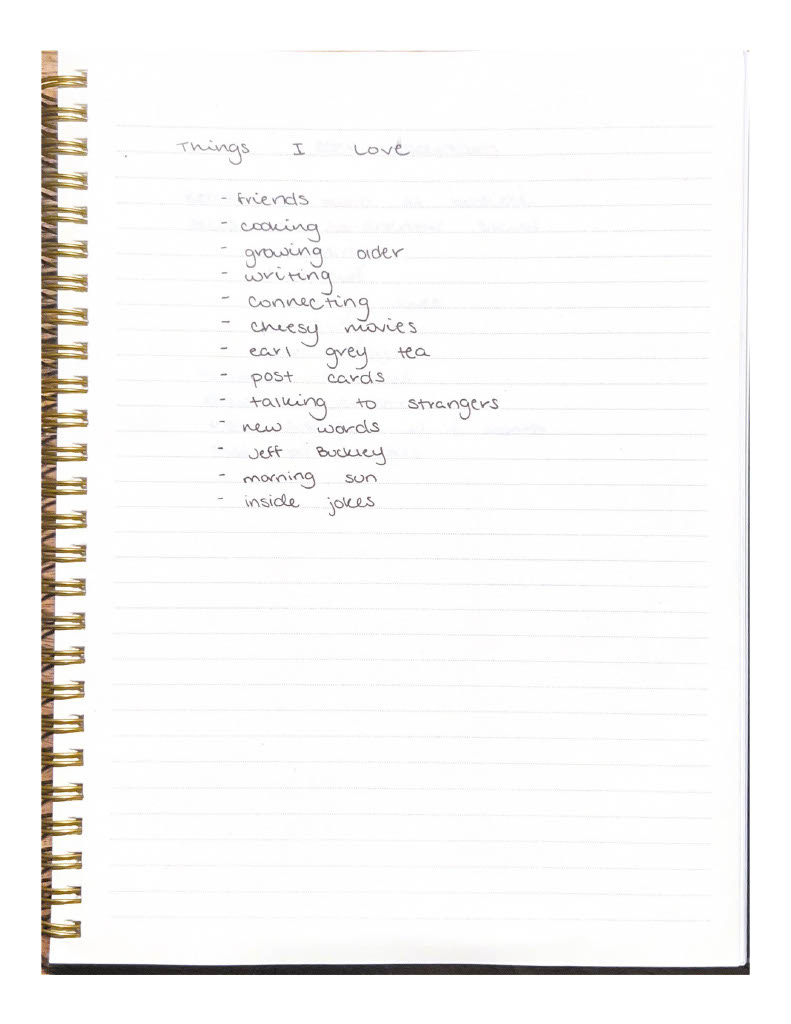 Things I Love
- friends
- cooking
- growing older
- writing
- connecting
- cheesy movies
- earl grey tea
- post cards
- talking to strangers
- new words
- Jeff Buckley
- morning sun
- inside jokes